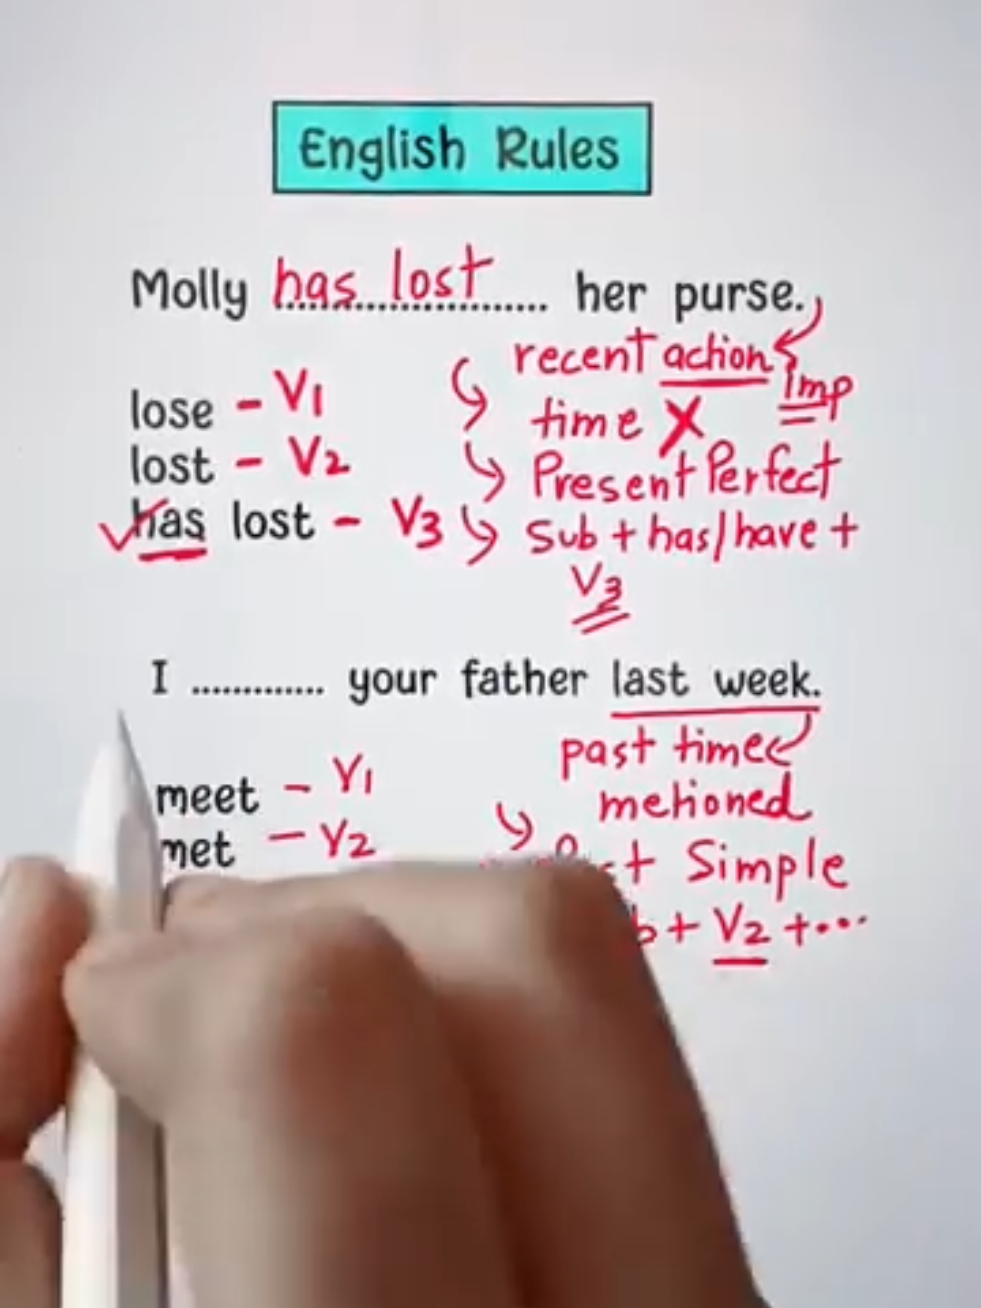 English Rules
Molly has lost her purse.
recent action
Imp
lose - V1
time X
lost - V2
Present Perfect
has lost - V3
Sub + has/have +
V3
I ............. your father last week.
past time
metioned
meet - V1
met - V2
Simple
+ V2 + ...